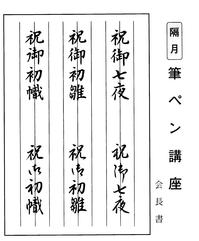 隔月
筆ペン講座
会長書
祝御七夜
祝御七夜
祝御初雛
祝御初雛
祝御初幟
祝御初幟